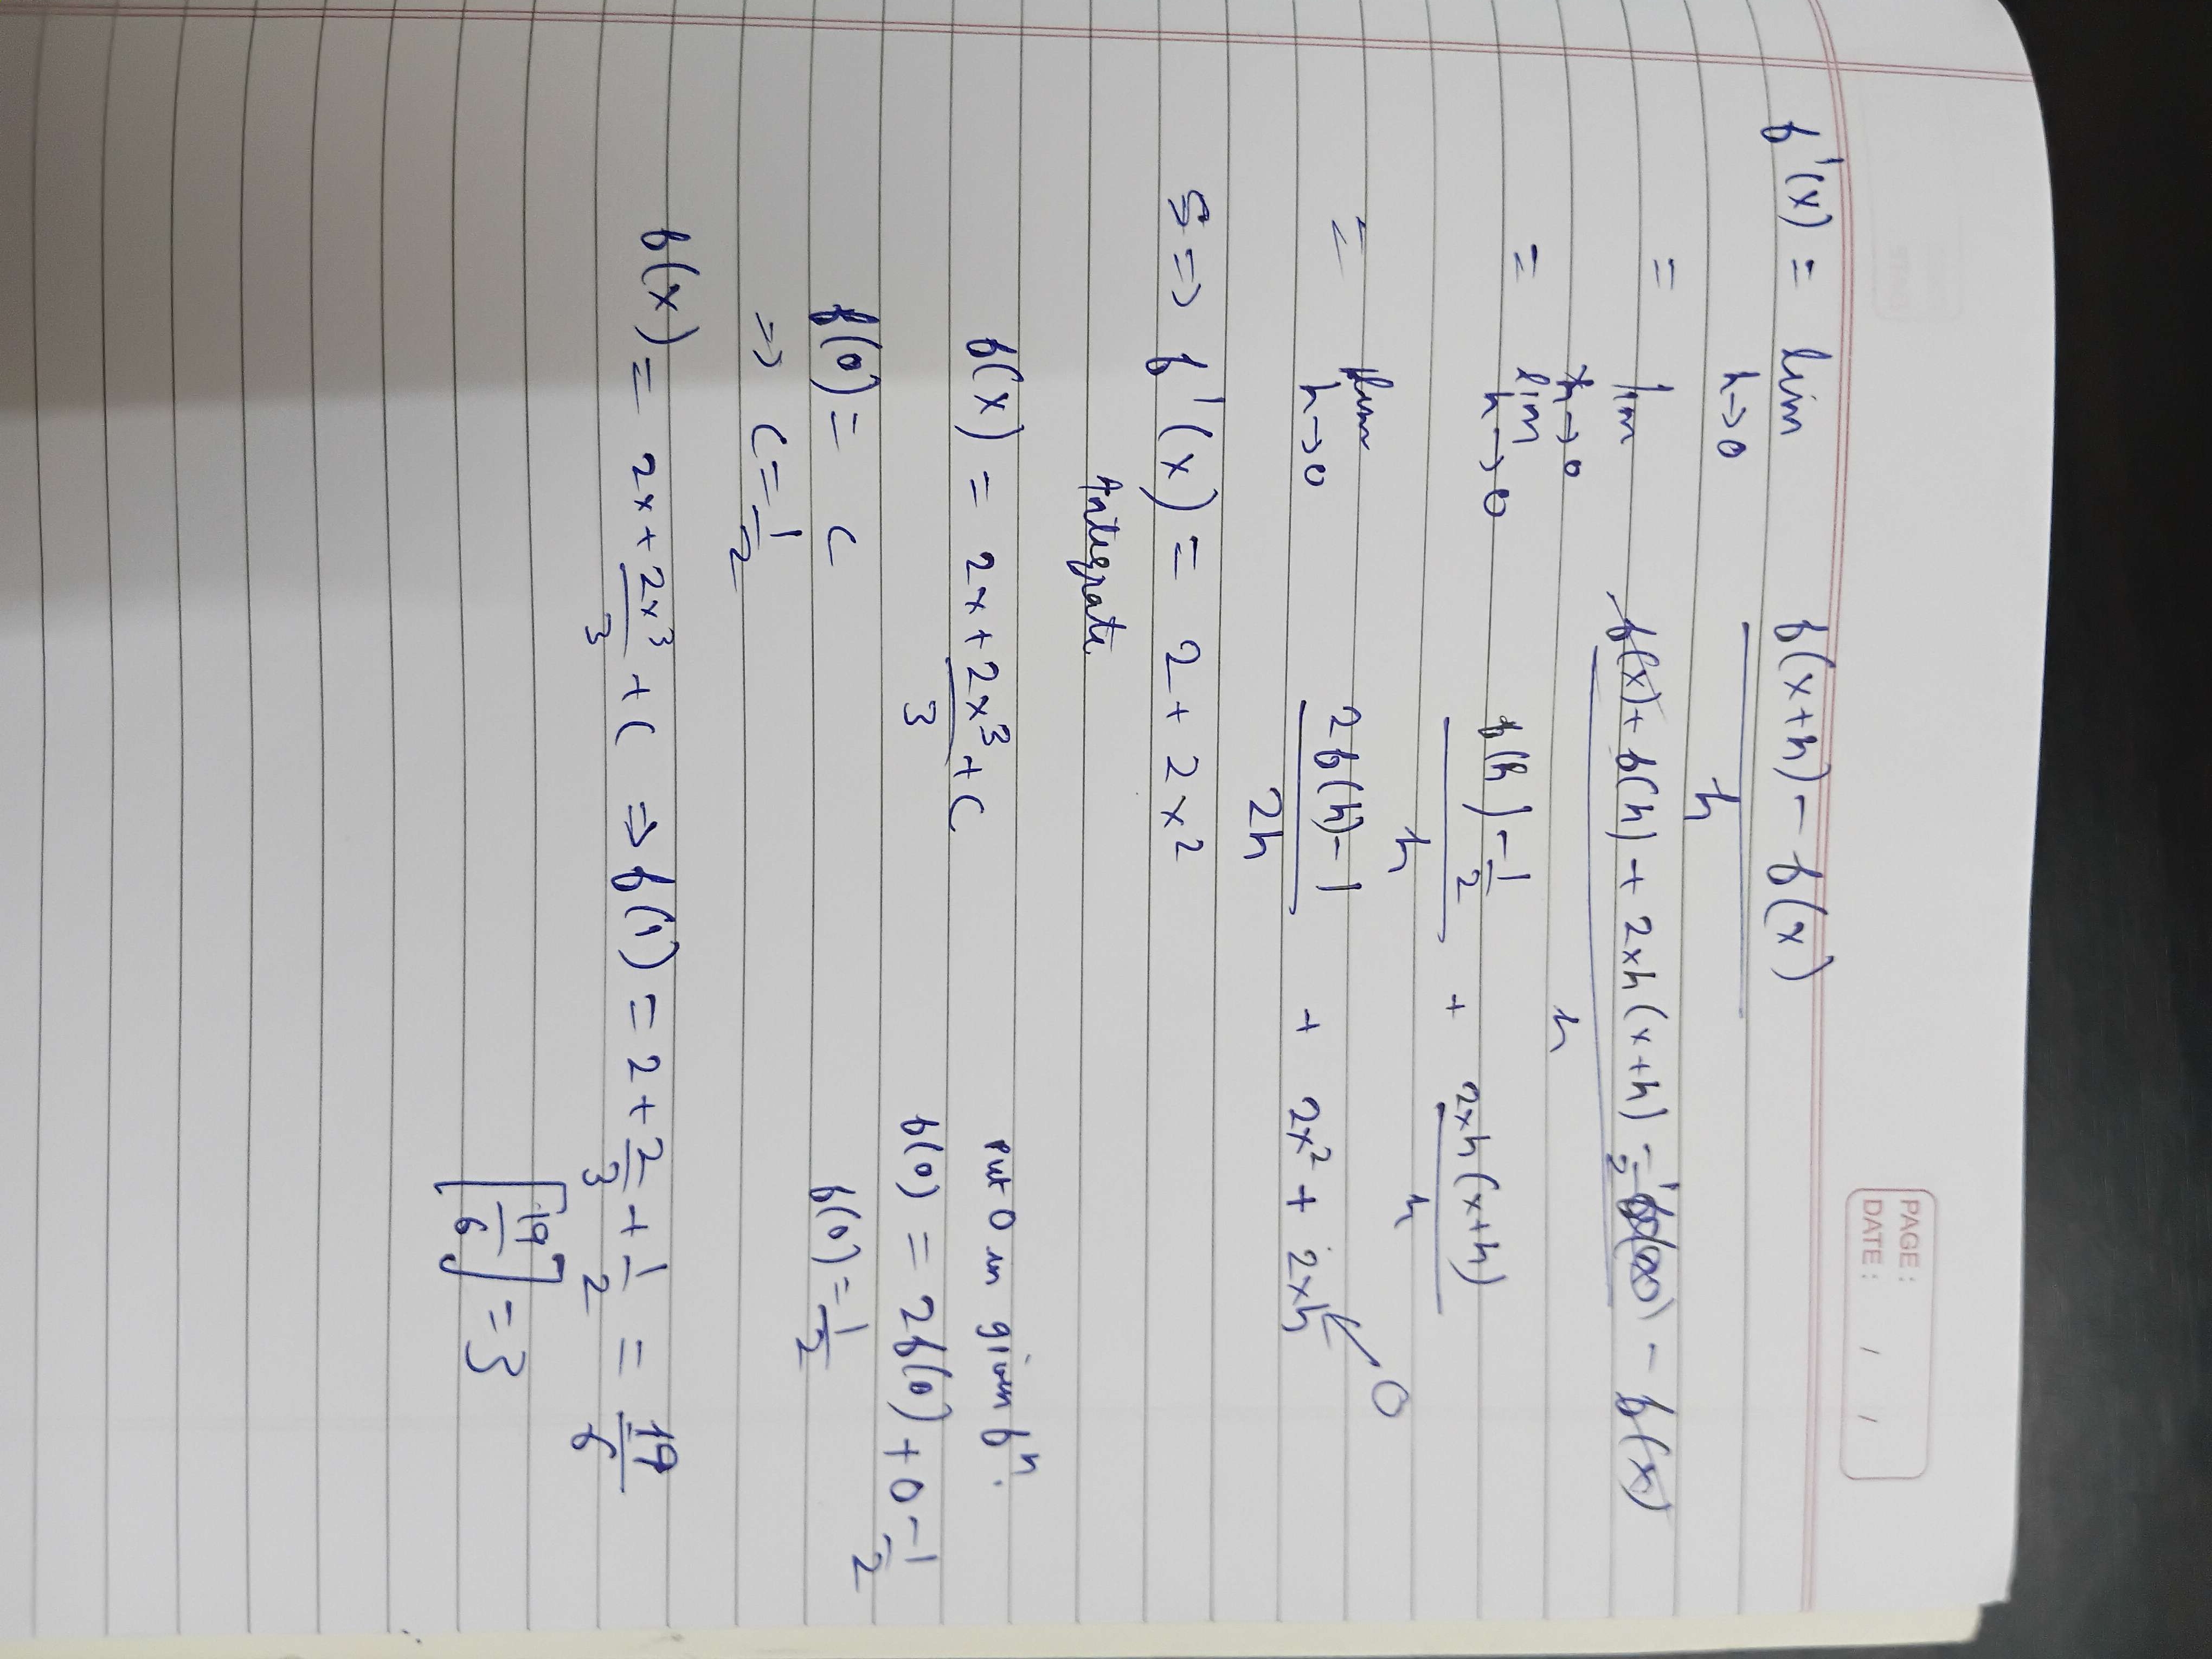 PAGE:
DATE: / /
f'(x) = lim h→0 f(x+h) - f(x) / h
= lim h→0 f(x) + f(h) + 2xh(x+h) - 1/2 - f(x) / h
= lim h→0 f(h) - 1/2 / h + 2xh(x+h) / h
= lim h→0 2f(h) - 1 / 2h + 2x² + 2xh → 0
5 => f'(x) = 2 + 2x²
Antegrate
f(x) = 2x + 2x³/3 + C
put 0 in given fⁿ.
f(0) = 2f(0) + 0 - 1/2
f(0) = C
f(0) = 1/2
=> C = 1/2
f(x) = 2x + 2x³/3 + C => f(1) = 2 + 2/3 + 1/2 = 19/6
[19/6] = 3